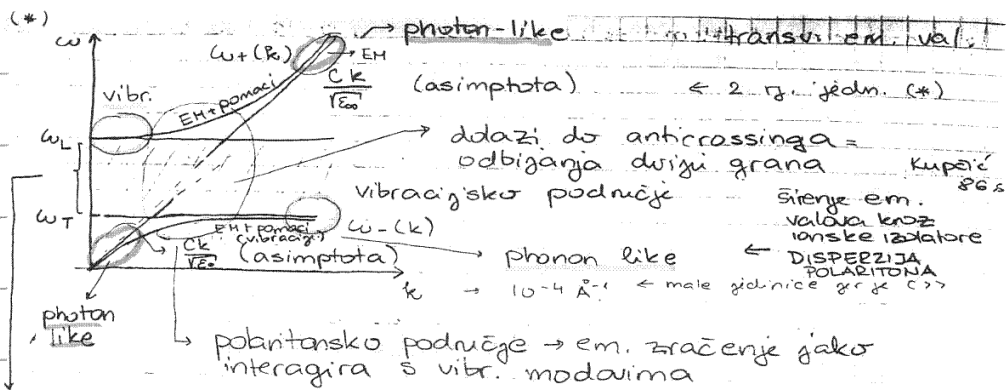 (*)
ω
ω+(k)
→ photon-like
→ EM
transv. em. val.
ck/√ε∞ (asimptota)
← 2 rj. jedn. (*)
vibr.
EM+pomaci
ωL
→ dolazi do anticrossinga =
odbijanja dviju grana
Kupčić
86 s
vibracijsko područje
širenje em.
valova kroz
ionske izolatore
← DISPERZIJA
POLARITONA
ωT
EM+pomaci
(vibracije)
ω-(k)
ck/√ε₀ (asimptota)
→ phonon like
k
→ 10-4 Å-1 ← male jedinice jer je c >>
photon
like
→ polaritonsko područje → em. zračenje jako
interagira s vibr. modovima